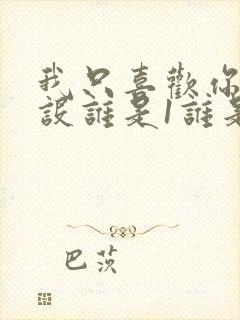 我只喜歡你
設誰是1誰是
巴茨